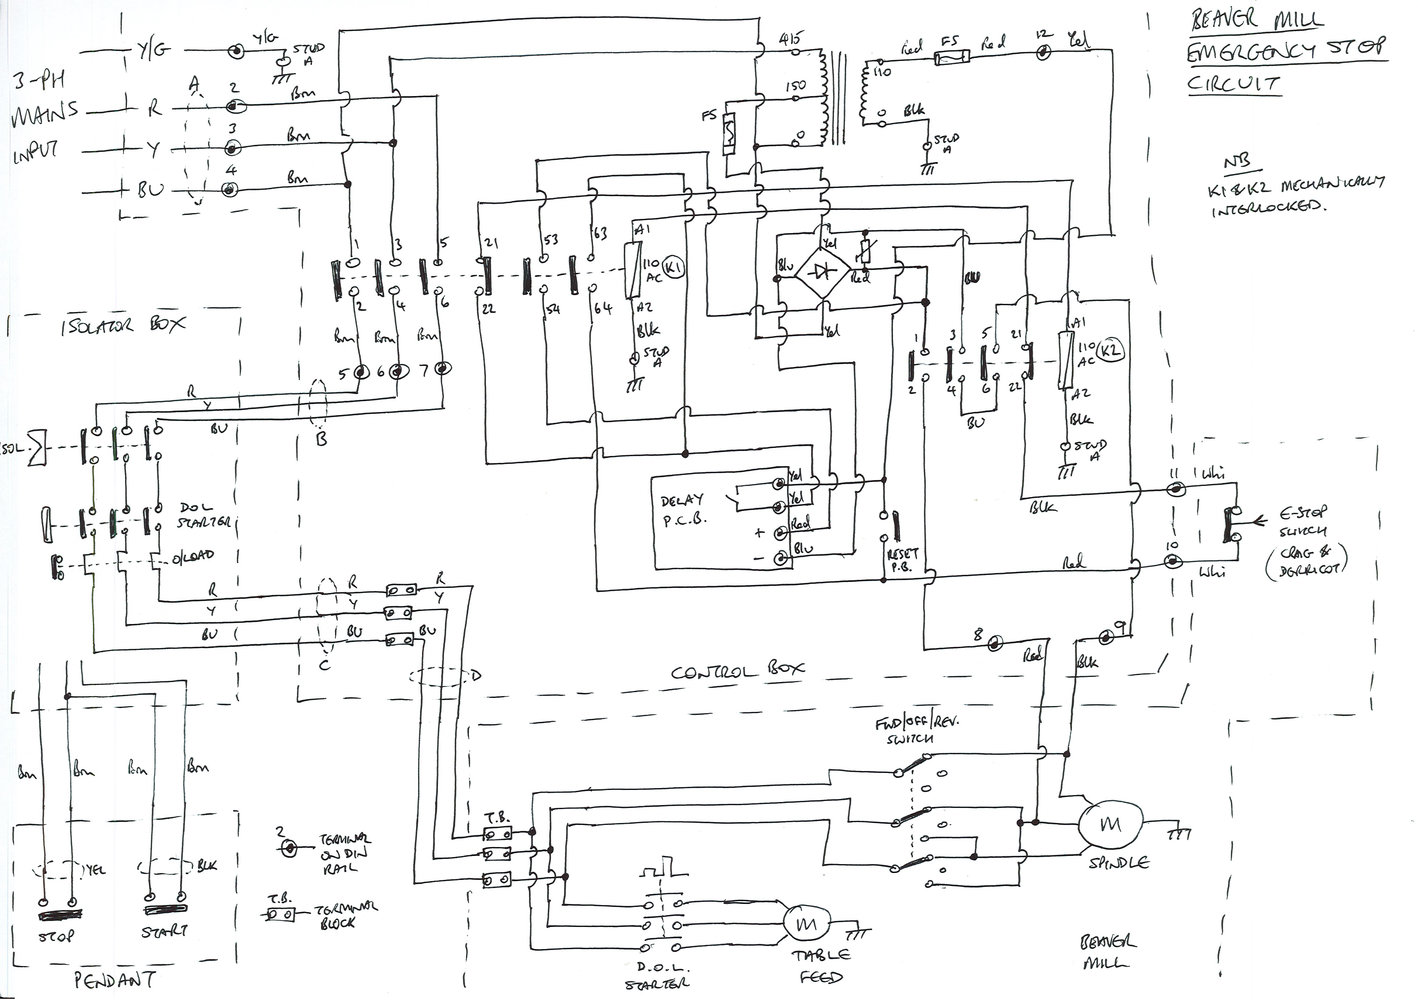 BEAVER MILL
EMERGENCY STOP
CIRCUIT
NB
K1 & K2 MECHANICALLY
INTERLOCKED.
3-PH
MAINS
INPUT
Y/G
Y/G
STUD
A
A
R
2
Brn
Y
3
Brn
BU
4
Brn
415
150
0
FS
110
0
Red
FS
Red
12
Yel
Blk
STUD
A
1
3
5
21
53
63
A1
110
AC
K1
2
4
6
22
54
64
A2
Blk
STUD
A
Brn
Brn
Brn
5
6
7
Yel
Blu
Red
Yel
BU
1
3
5
21
A1
110
AC
K2
2
4
6
22
A2
BU
Blk
STUD
A
ISOLATOR BOX
R
Y
BU
B
ISOL.
DOL
STARTER
O/LOAD
R
Y
BU
R
Y
BU
C
R
Y
BU
D
DELAY
P.C.B.
Yel
Yel
+
Red
-
Blu
RESET
P.B.
Blk
11
Whi
Red
10
Whi
E-STOP
SWITCH
(CRAG &
DERRICOT)
8
Red
9
Blk
CONTROL BOX
FWD/OFF/REV.
SWITCH
Brn
Brn
Brn
Brn
YEL
BLK
STOP
START
PENDANT
2
TERMINAL
ON DIN
RAIL
T.B.
TERMINAL
BLOCK
T.B.
M
SPINDLE
M
TABLE
FEED
D.O.L.
STARTER
BEAVER
MILL